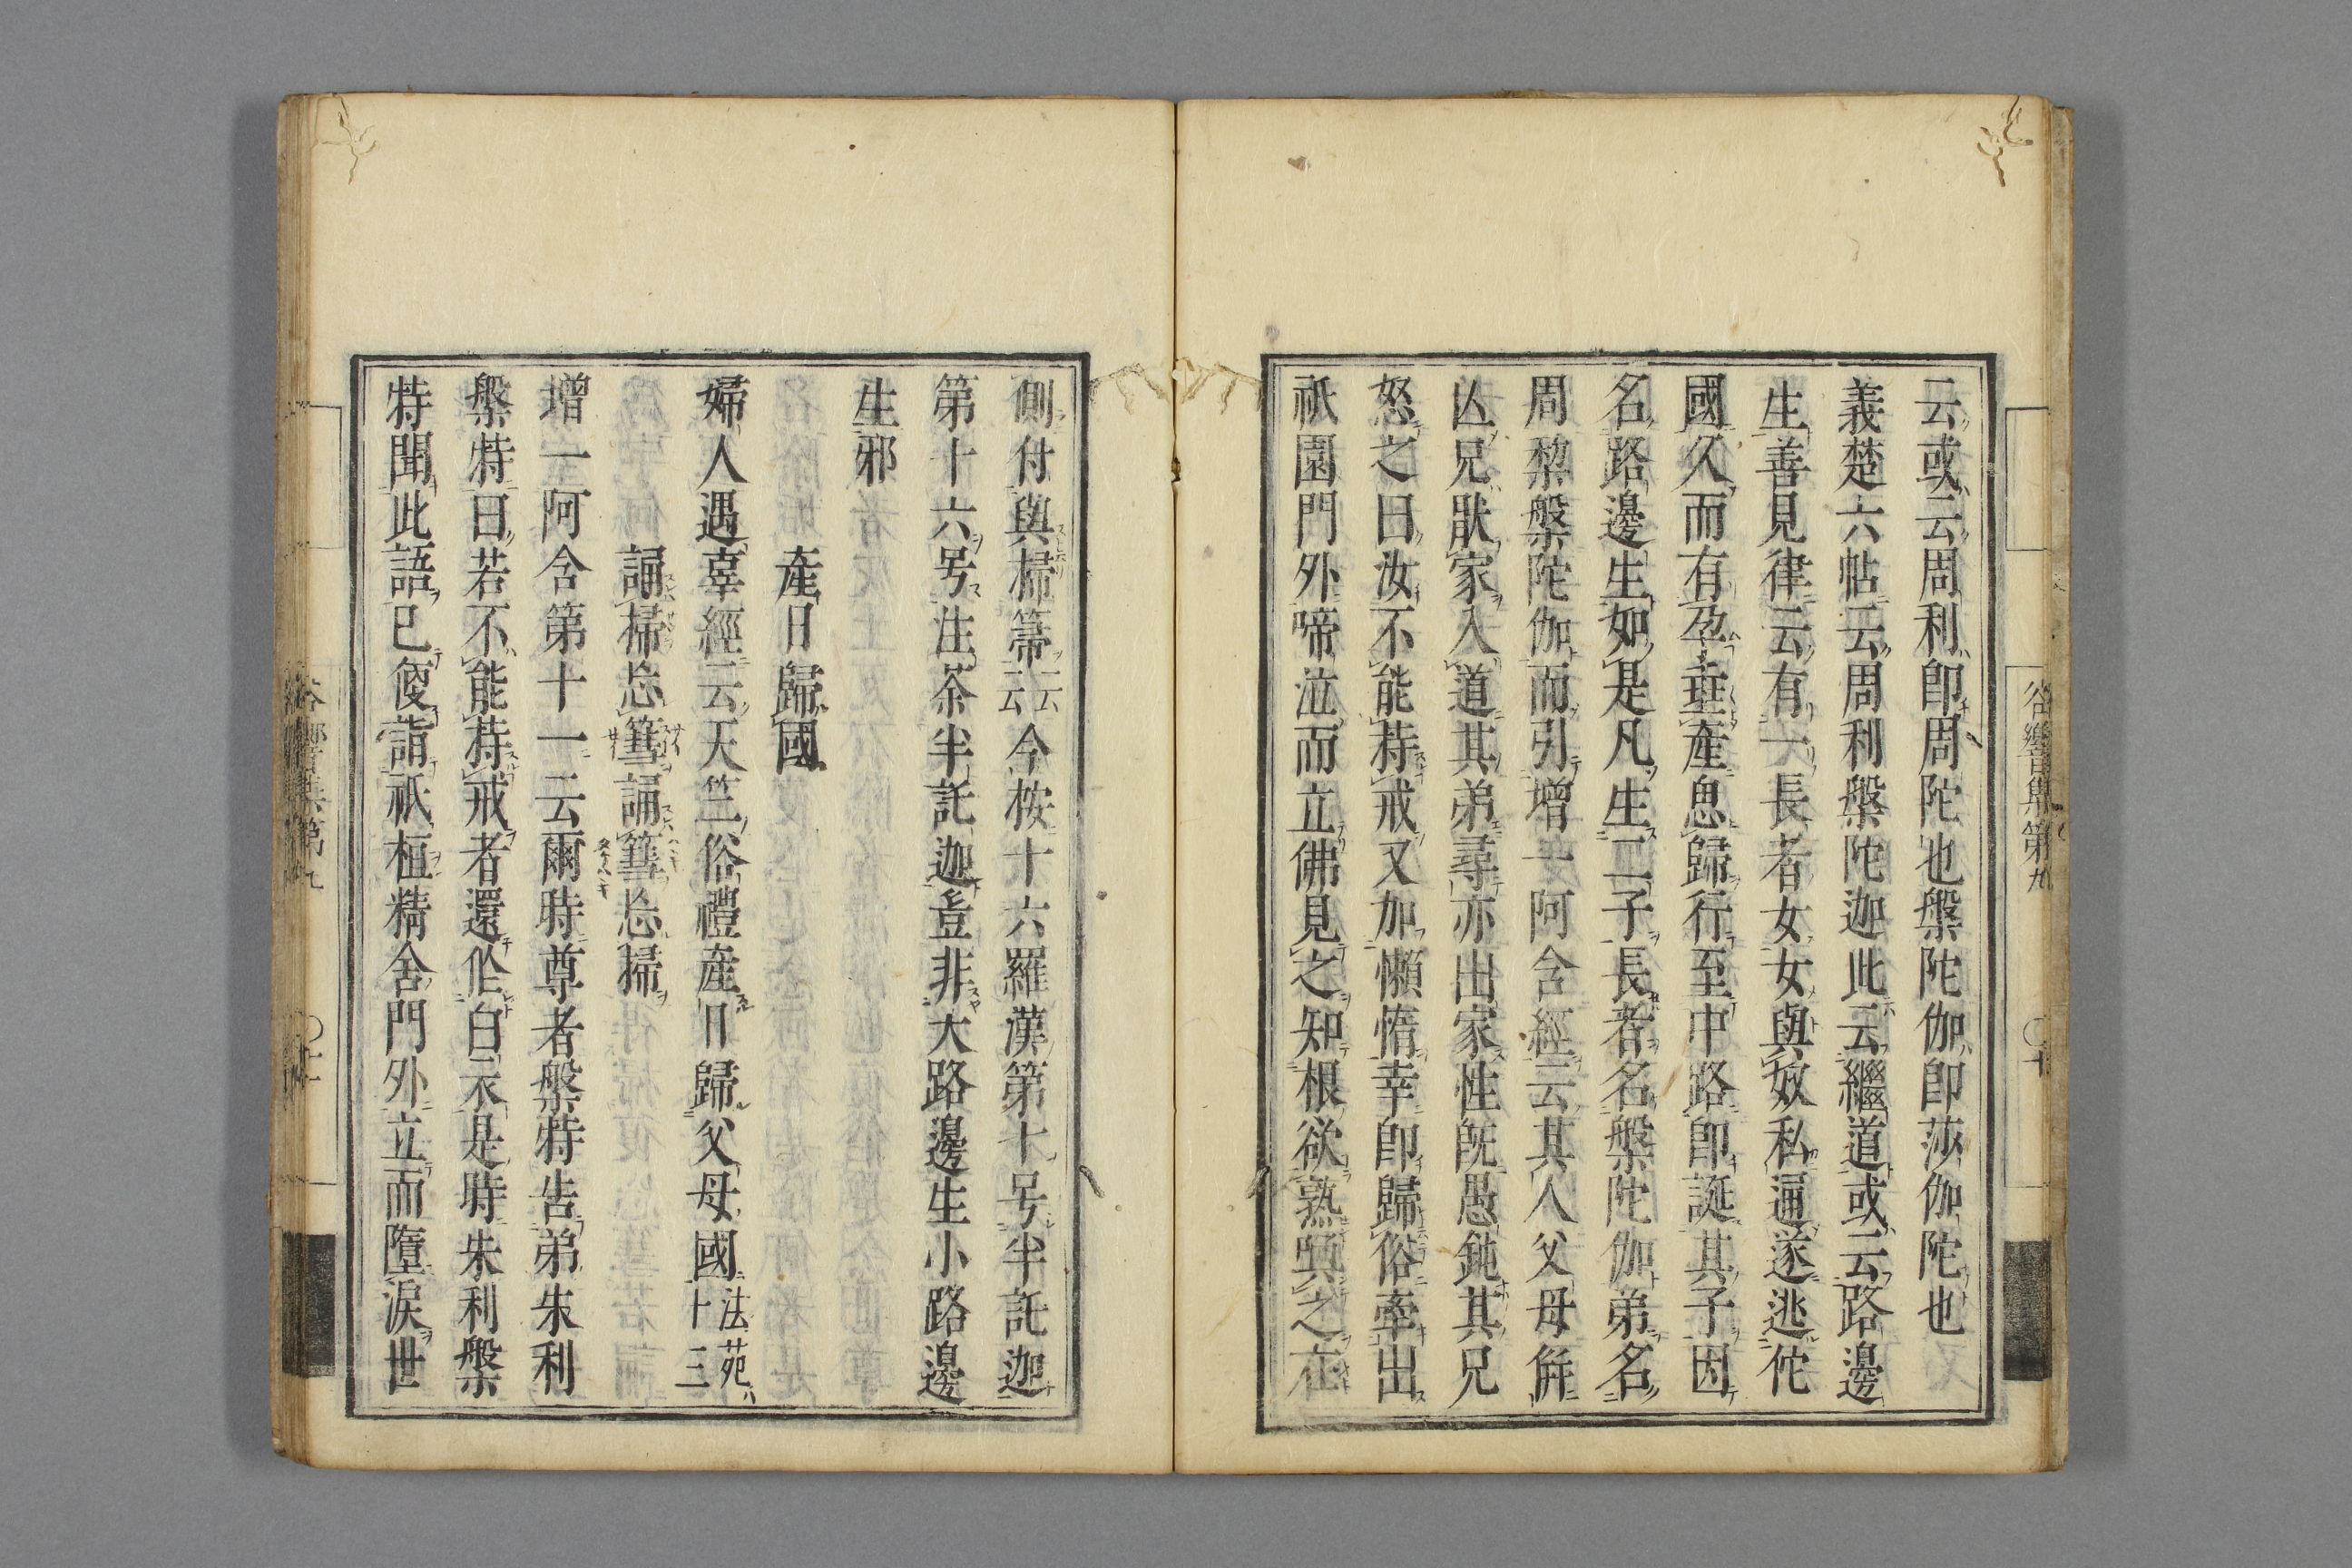 云或云周利即周陀也槃陀伽即莎伽陀也又
義楚六帖云周利槃陀迦此云繼道或云路邊
生善見律云有一長者女女與奴私通遂逃佗
國久而有孕垂產思歸行至中路即誕其子因
名路邊生如是凡生二子長者名槃陀伽弟名
周梨槃陀伽而引增一阿含經云其人父母併
亾兄猒家入道其弟尋亦出家性旣愚鈍其兄
怒之曰汝不能持戒又加懶惰幸即歸俗牽出
祇園門外啼泣而立佛見之知根欲熟與之在
側付與掃箒云云今按十六羅漢第十号半託迦
第十六号注茶半託迦豈非大路邊生小路邊
生邪
產日歸國
婦人遇辜經云天竺俗禮產日歸父母國法苑十三
誦掃忘篲誦篲忘掃
增一阿含第十一云爾時尊者槃特告弟朱利
槃特曰若不能持戒者還作白衣是時朱利槃
特聞此語已復詣祇桓精舍門外立而墮淚世
谷響集第九
〇十
谷響集第九
〇十一